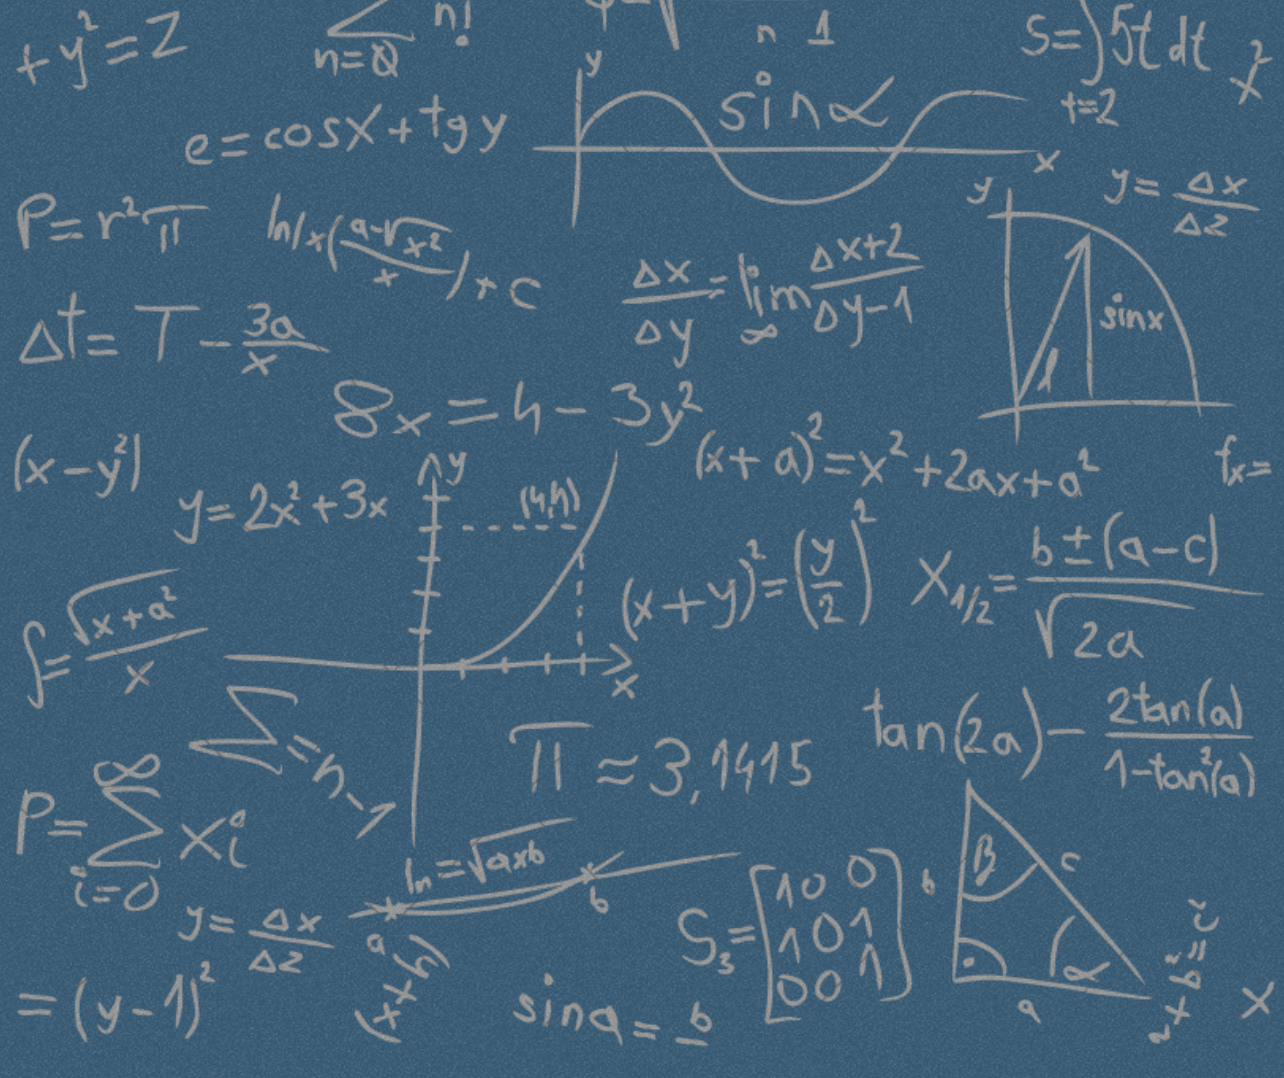 +y²=Z
∑ n!
n=0
n 1
S=∫5t dt
t=2
x²
e=cosx+tgy
y
sinα
x
P=r²π
ln/x((a-√x²)/x)+c
Δx/Δy=lim Δx+2/Δy-1
∞
y
sinx
y=Δx/Δz
Δt=T-3a/x
8x=4-3y²
(x-y²)
y=2x²+3x
y
(4,4)
x
(x+a)²=x²+2ax+a²
fx=
(x+y)²=(y/2)²
X1/2=b±(a-c)/√2a
∫=√x+a²/x
∑=n-1
π≈3,1415
tan(2a)-2tan(a)/1-tan²(a)
∞
P=∑xi
i=0
ln=√axb
a
b
y=Δx/Δz
S₃=[1 0 0
1 0 1
0 0 1]
b
β
c
α
a
=(y-1)²
sina=b
x